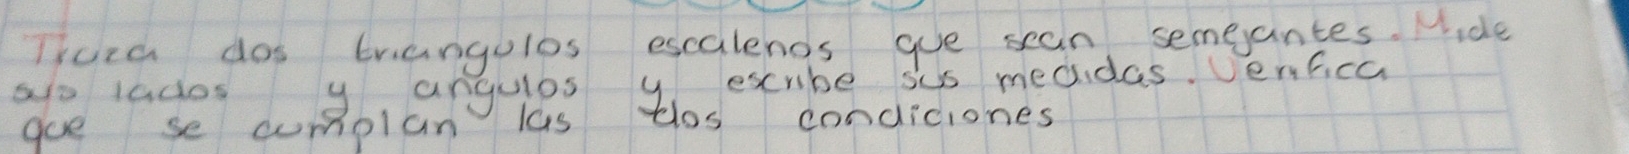 Traza dos triangulos escalenos que sean semejantes. Mide
sus lados y angulos y escribe sus medidas. Verifica
que se cumplan las dos condiciones